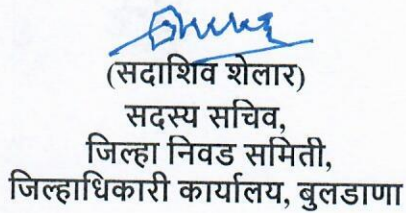 (सदाशिव शेलार)
सदस्य सचिव,
जिल्हा निवड समिती,
जिल्हाधिकारी कार्यालय, बुलडाणा